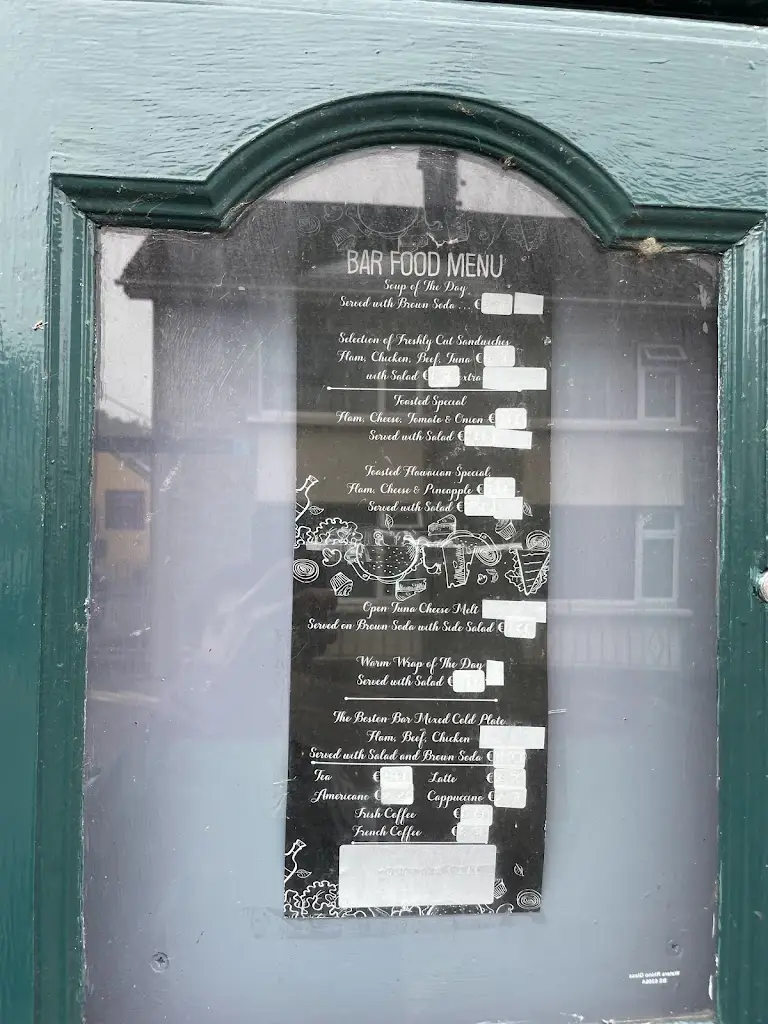 BAR FOOD MENU
Soup of The Day
Served with Brown Soda ... €
Selection of Freshly Cut Sandwiches
Ham, Chicken, Beef, Tuna €
with Salad € extra
Toasted Special
Ham, Cheese, Tomato & Onion €
Served with Salad €
Toasted Hawaiian Special
Ham, Cheese & Pineapple €
Served with Salad €
Open Tuna Cheese Melt
Served on Brown Soda with Side Salad €
Warm Wrap of The Day
Served with Salad €
The Boston Bar Mixed Cold Plate
Ham, Beef, Chicken
Served with Salad and Brown Soda €
Tea € Latte €
Americano € Cappuccino €
Irish Coffee €
French Coffee €